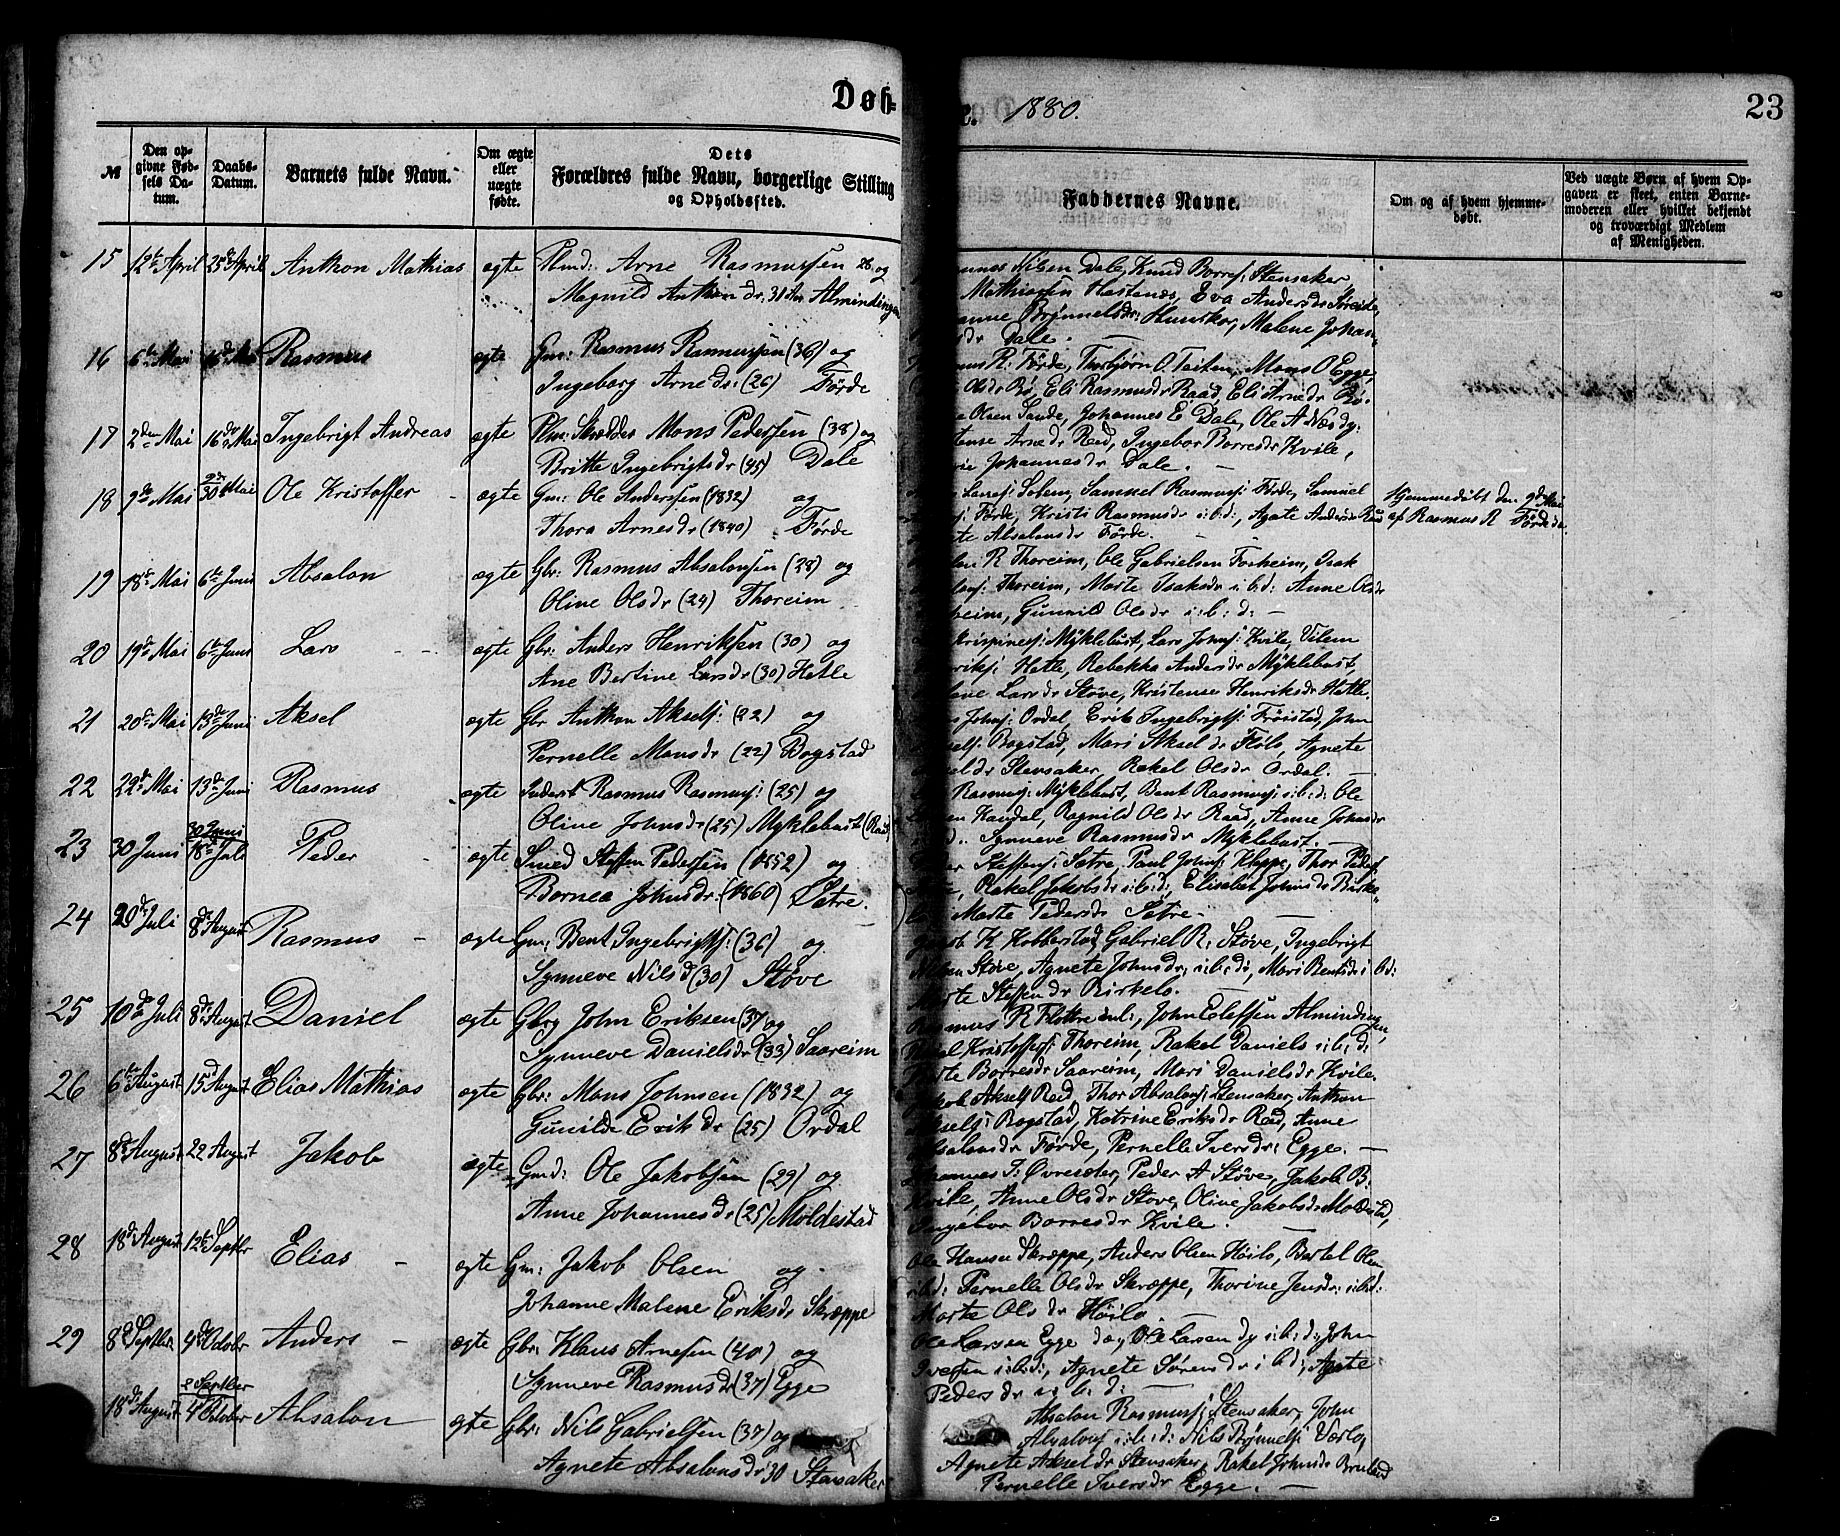 Døb-
e. 1880.
23
№
Den opgivne Fødsels Datum.
Daabs-Datum.
Barnets fulde Navn.
Om ægte eller uægte fødte.
Dets Forældres fulde Navn, borgerlige Stilling og Opholdssted.
Faddernes Navne.
Om og af hvem hjemmedøbt.
Ved uægte Børn af hvem Opgaven er skeet, enten Barnemoderen eller hvilket bekjendt og troværdigt Medlem af Menigheden.
15 12te April 25de April Anthon Mathias ægte Arne Rasmussen 28 og
Magnild Anthon dr. 31 Aar Almindingen
Nilsen Dale, Knud Borres: Stensaker
Mathiassen Hestenæs, Eva Andersdr
Brynnelsdr: Humskor, Malene Johan-
dr Dale. —
16 6te Mai 16de Mai Rasmus ægte Gm: Rasmus Rasmussen (36) og
Ingeborg Arnedr: (26) Førde
R. Førde, Thorbjørn O. Teiten, Mons O Egge,
Olsdr Bø, Eli Rasmusdr Raad, Eli Arnedr Bø.
17 2den Mai 16de Mai Ingebrigt Andreas ægte Mons Pedersen (38) og
Britte Ingebrigtsdr (45) Dale
Olsen Sande, Johannes E Dale, Ole A Næs dy:
Arnedr Reed, Ingebor Borresdr Kvile,
Johannesdr Dale. —
18 9de Mai 9de 30te Mai Ole Kristoffer - ægte Gm: Ole Anderssen (1832) og
Thora Arnesdr (1840) Førde
Samuel Rasmuss: Førde, Samuel
Førde, Kristi Rasmusdr i:b:d:, Agate Andersdr Raad
Absalonsdr Førde. -
Hjemmedøbt den 9de Mai
af Rasmus R Førde
19 18de Mai 6te Juni Absalon ægte Gbr: Rasmus Absalonsen (28) og
Oline Olsdr (24) Thoreim
R Thoreim, Ole Gabrielsen Forheim, Isak
Thoreim, Marte Isaksdr i:b:d: Anne Olsdr
heim, Gunnild Olsdr i:b:d: —
20 19de Mai 6te Juni Lars - - ægte Gbr: Anders Henriksen (30) og
Ane Bertine Larsdr (30) Hatle
Krispines: Myklebust, Lars Johns: Kvile, Vilem
Hatle, Rebekka Andersdr Myklebust,
Larsdr Støve, Kristense Henriksdr Hatle.
21 20de Mai 13de Juni Aksel ægte Gbr Anthon Aksels: (22) og
Pernelle Monsdr (22) Bogstad
Johns: Ordal, Erik Ingebrigts: Frøistad, John
Bogstad, Mari Akseldr Flølo, Agnete
dr Stensaker, Rakel Olsdr Ordal. —
22 22de Mai 13de Juni Rasmus ægte Inderst Rasmus Rasmuss: (25) og
Oline Johnsdr (25) Myklebust (Raad)
Rasmuss: Myklebust, Bent Rasmuss: i:b:d: Ole
Kandal, Ragnild Olsdr Raad, Anne Johnsdr
Synneve Rasmusdr Myklebust. —
23 30 Juni 30 Juni 18de Juli Peder - ægte Smed Steffen Pedersen (1852) og
Bornea Johnsdr: (1860) Sætre.
Steffens: Sætre, Paul Johns: Kleppe, Thor Peders:
Rakel Jakobsdr i:b:d:, Elisabet Johnsdr Birke-
lo, Marte Pedersdr Sætre. —
24 20de Juli 8de August Rasmus - ægte Gm: Bent Ingebrigts: (36) og
Synneve Nilsd (30) Støve
K Kobberstad, Gabriel R: Støve, Ingebrigt
Støve, Agnete Johnsdr i:b:d:, Mari Bentsdr i:b:d:
Marte Steffendr Birkelo. —
25 10de Juli 8de August Daniel ægte Gbrg John Eriksen (37 og
Synneve Danielsdr (33) Saareim
Rasmus R Flottre John Elefsen Almindingen,
Kristoffers: Thoreim, Rakel Daniels i:b:d:
Borresdr Saareim, Mari Danielsdr Kvile.
26 6te August 15de August Elias Mathias ægte Gbr: Mons Johnsen (1832) og
Gunilde Erikdr (25) Ordal
Jakob Aksels Reed, Thor Absalons: Stensaker, Anthon
Aksels: Bogstad, Katrine Eriksdr Reed, Anne
Absalonsdr Førde, Pernelle Iversdr: Egge. —
27 8de August 22 August Jakob ægte Gmd: Ole Jakobsen (29) og
Anne Johannesdr (25) Moldestad
Johannes J: Øvreseter, Peder A Støve, Jakob B.
Kvile, Anne Olsdr Støve, Oline Jakobsdr Moldestad,
Ingebor Borresdr Kvile. —
28 18de August 12te Septbr Elias - ægte Gm: Jakob Olsen og
Johanne Malene Eriksdr Skræppe
Ole Hansen Skræppe, Anders Olsen Høilo, Bertel Olsen
i:b:d: Pernelle Olsdr Skræppe, Thorine Jensdr: i:b:d:
Marte Olsdr Høilo. —
29 8de Septbr 4de Octobr Anders - ægte Gbr: Klaus Arnesen (40) og
Synneve Rasmusdr (37) Egge
Ole Larsen Egge dæ, Ole Larsen dy i:b:d:, John
Iversen i:b:d:, Agnete Sørensdr i:b:d:, Agate
Pedersdr i:b:d: —
18de August 2 Septber 4de October Absalon ægte Gbr: Nils Gabrielsen (37) og
Agnete Absalonsdr 30 Stensaker
Absalon Rasmuss: Stensaker, John
Absalons: i:b:d: Nils Brynnels: Værlo,
Agnete Akseldr Stensaker, Rakel Johnsdr Bruland
Pernelle Iversdr Egge. —